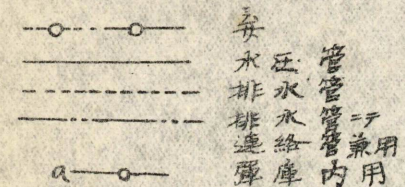 水圧管
排水管
排水管ニテ
連絡管兼用
a 彈庫内用